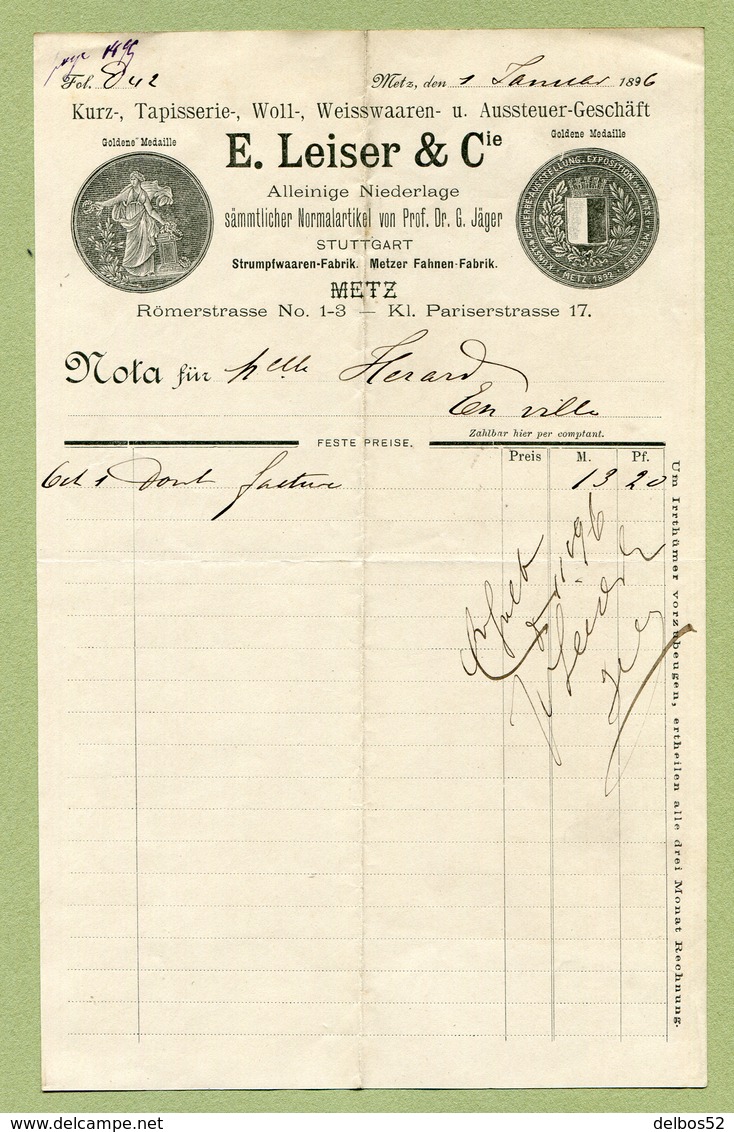 Fol. 842
Metz, den 1 Januar 1896
Kurz-, Tapisserie-, Woll-, Weisswaaren- u. Aussteuer-Geschäft
Goldene Medaille
E. Leiser & Cie
Goldene Medaille
Alleinige Niederlage
sämmtlicher Normalartikel von Prof. Dr. G. Jäger
STUTTGART
Strumpfwaaren-Fabrik. Metzer Fahnen-Fabrik.
METZ
METZ 1892
Römerstrasse No. 1-3 — Kl. Pariserstrasse 17.
Nota für Melle Herard
En ville
Zahlbar hier per comptant.
FESTE PREISE.
Preis M. Pf.
Oct 1 Dont facture 13 20
Um Irrthümer vorzubeugen, ertheilen alle drei Monat Rechnung.
delbos52